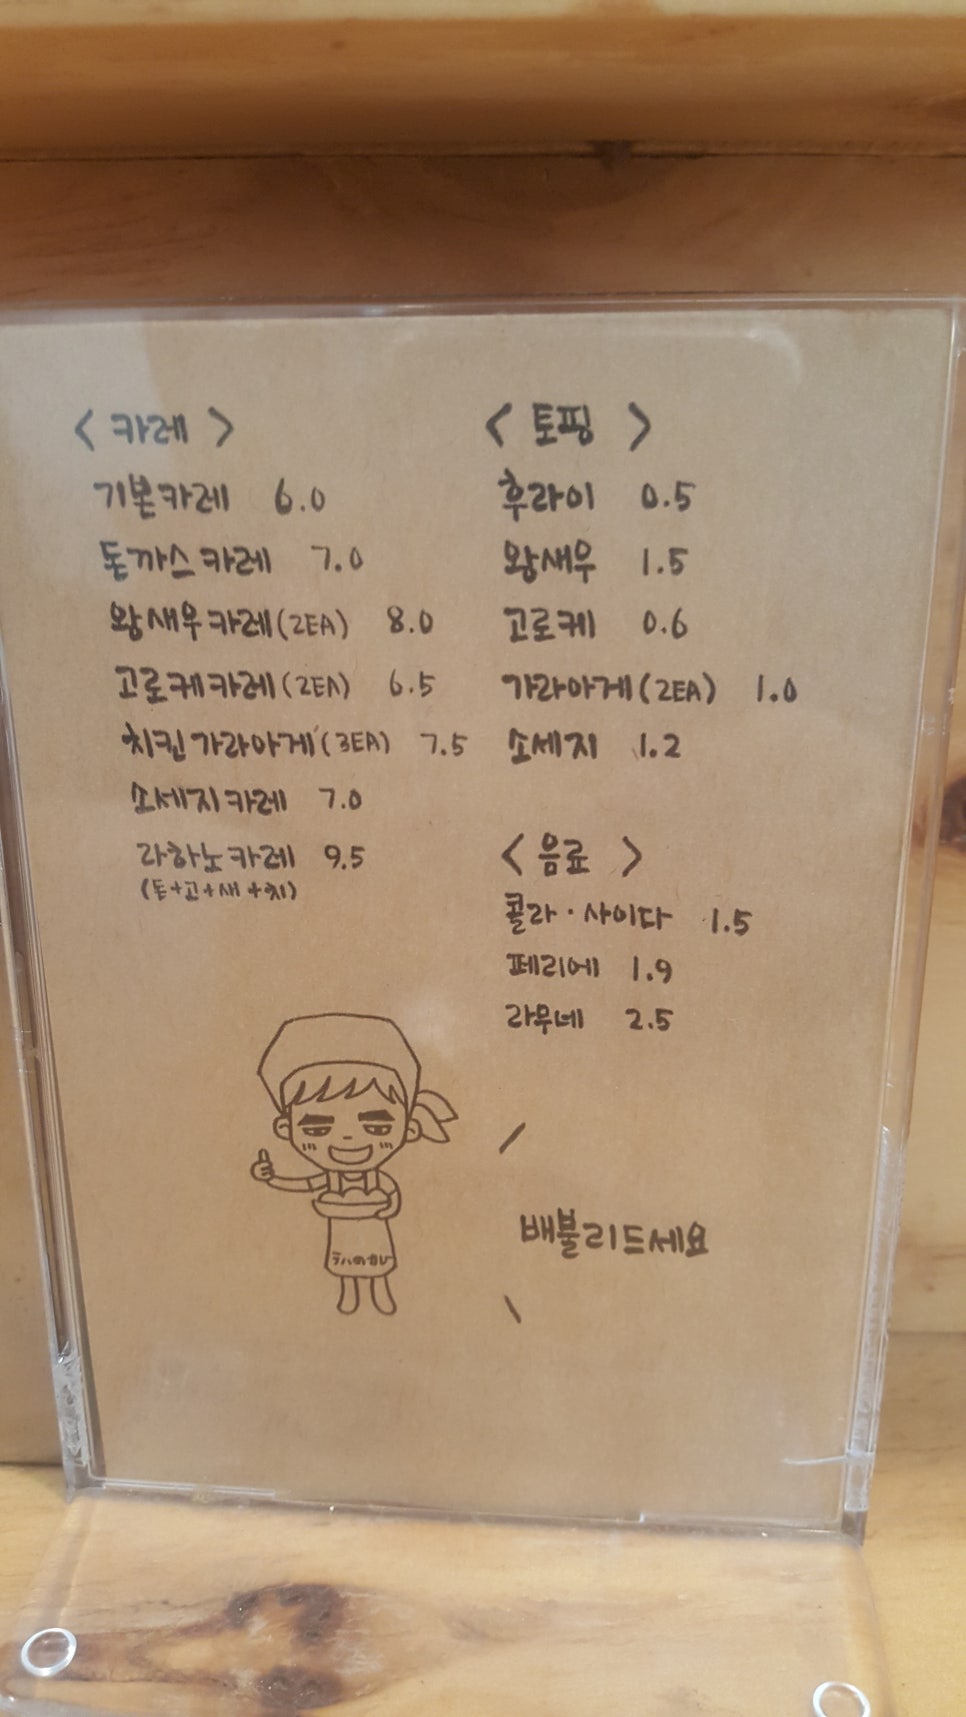 < 카레 >
기본카레 6.0
돈까스 카레 7.0
왕새우카레(2EA) 8.0
고로케카레(2EA) 6.5
치킨가라아게(3EA) 7.5
소세지카레 7.0
라하노카레 9.5
(돈+고+새+치)
< 토핑 >
후라이 0.5
왕새우 1.5
고로케 0.6
가라아게(2EA) 1.0
소세지 1.2
< 음료 >
콜라·사이다 1.5
페리에 1.9
라무네 2.5
배불리드세요
ラハのカレー